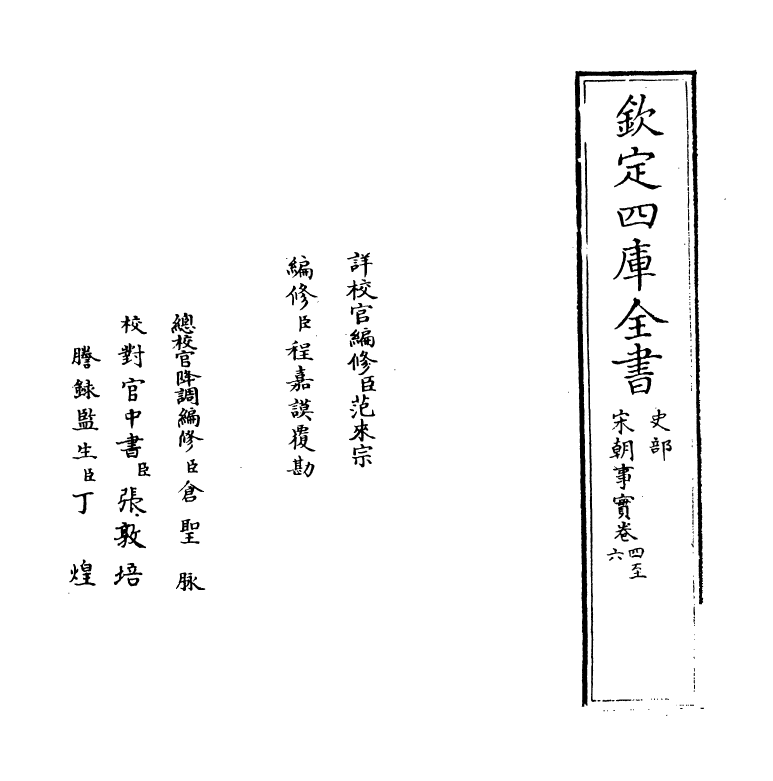 欽定四庫全書
史部
宋朝事實卷四至六
詳校官編修臣范來宗
編修臣程嘉謨覆勘
總校官降調編修臣倉聖脉
校對官中書臣張敦培
謄錄監生臣丁煌